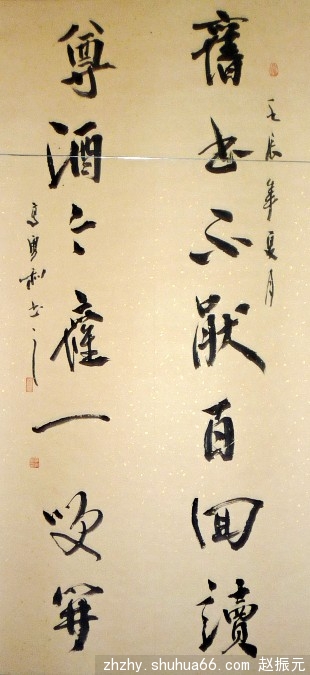 壬辰年夏月
舊書不厭百回讀
尊酒一笑開
高書
zhzhy.shuhua66.com 赵振元